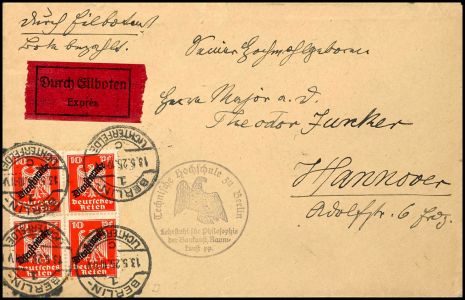 Durch Eilboten
Bote bezahlt.
Seiner Hochwohlgeboren
Durch Eilboten
Exprès
Herrn Major a. D.
Theodor Junker
Hannover
Adolfstr. 6
Technische Hochschule zu Berlin
Lehrstuhl für Philosophie
der Baukunst, Raum-
kunst pp.
BERLIN-LICHTERFELDE
1 C
13.5.25
10 Pf
Deutsches
Reich
Dienstmarke
10 Pf
Deutsches
Reich
Dienstmarke
10 Pf
Deutsches
Reich
Dienstmarke
10 Pf
Deutsches
Reich
Dienstmarke
BERLIN-
BERLIN-